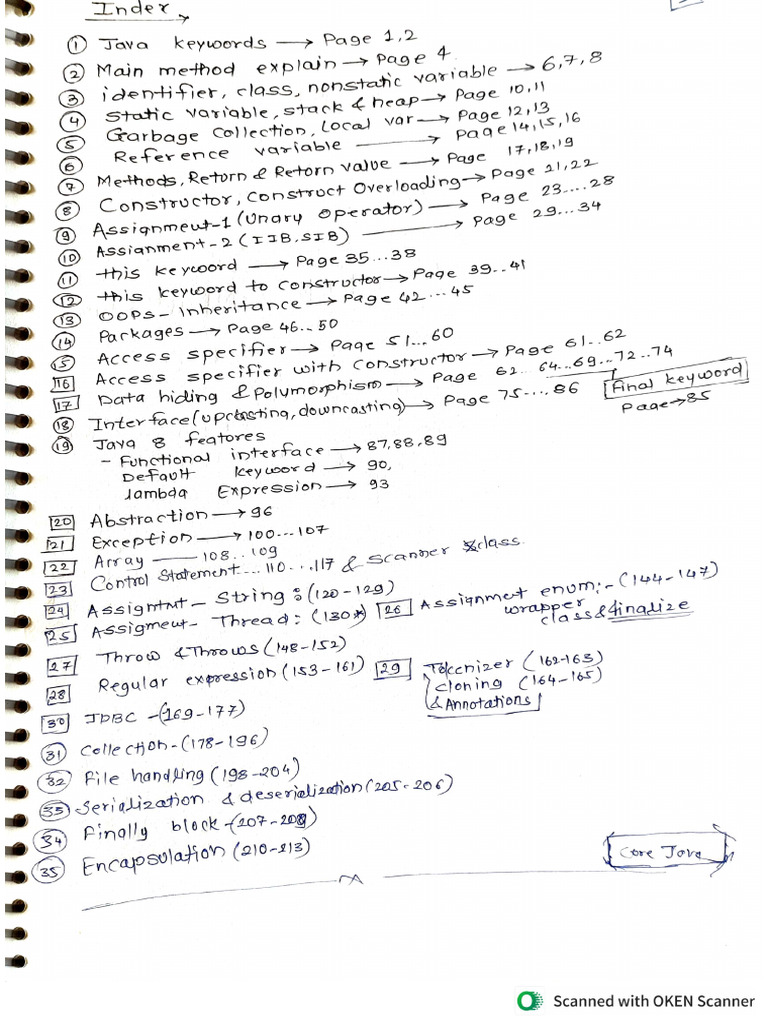 Index
① Java keywords → Page 1,2
② Main method explain → Page 4
③ identifier, class, nonstatic variable → 6,7,8
④ Static variable, stack & heap → Page 10,11
⑤ Garbage Collection, Local var → Page 12,13
⑥ Reference variable → Page 14,15,16
⑦ Methods, Return & Return value → Page 17,18,19
⑧ Constructor, Construct Overloading → Page 21,22
⑨ Assignment-1 (Unary operator) → Page 23....28
⑩ Assignment-2 (IIB.SIB) → Page 29...34
⑪ this keyword → Page 35...38
⑫ this keyword to constructor → Page 39..41
⑬ OOPS - Inheritance → Page 42...45
⑭ Packages → Page 46..50
⑮ Access specifier → Page 51...60
16 Access specifier with constructor → Page 61..62
17 Data hiding & Polymorphism → Page 62..64...69...72...74
Final keyword
Page → 85
⑱ Interface (upcasting, downcasting) → Page 75....86
⑲ Java 8 features
- Functional interface → 87,88,89
Default keyword → 90,
lambda Expression → 93
20 Abstraction → 96
21 Exception → 100...107
22 Array — 108..109
23 Control Statement...110...117 & Scanner class.
24 Assigntnt - String : (120-129)
25 Assigmeut - Thread : (130*)
26 Assignment enum:- (144-147)
wrapper
class & finalize
27 Throw & Throws (148-152)
28 Regular expression (153-161)
29 Tokenizer (162-163)
cloning (164-165)
& Annotations
30 JDBC - (169-177)
㉛ Collection - (178-196)
㉜ File handling (198-204)
㉝ Serialization & deserialization (205-206)
㉞ Finally block - (207-208)
㉟ Encapsulation (210-213)
Core Java
Scanned with OKEN Scanner